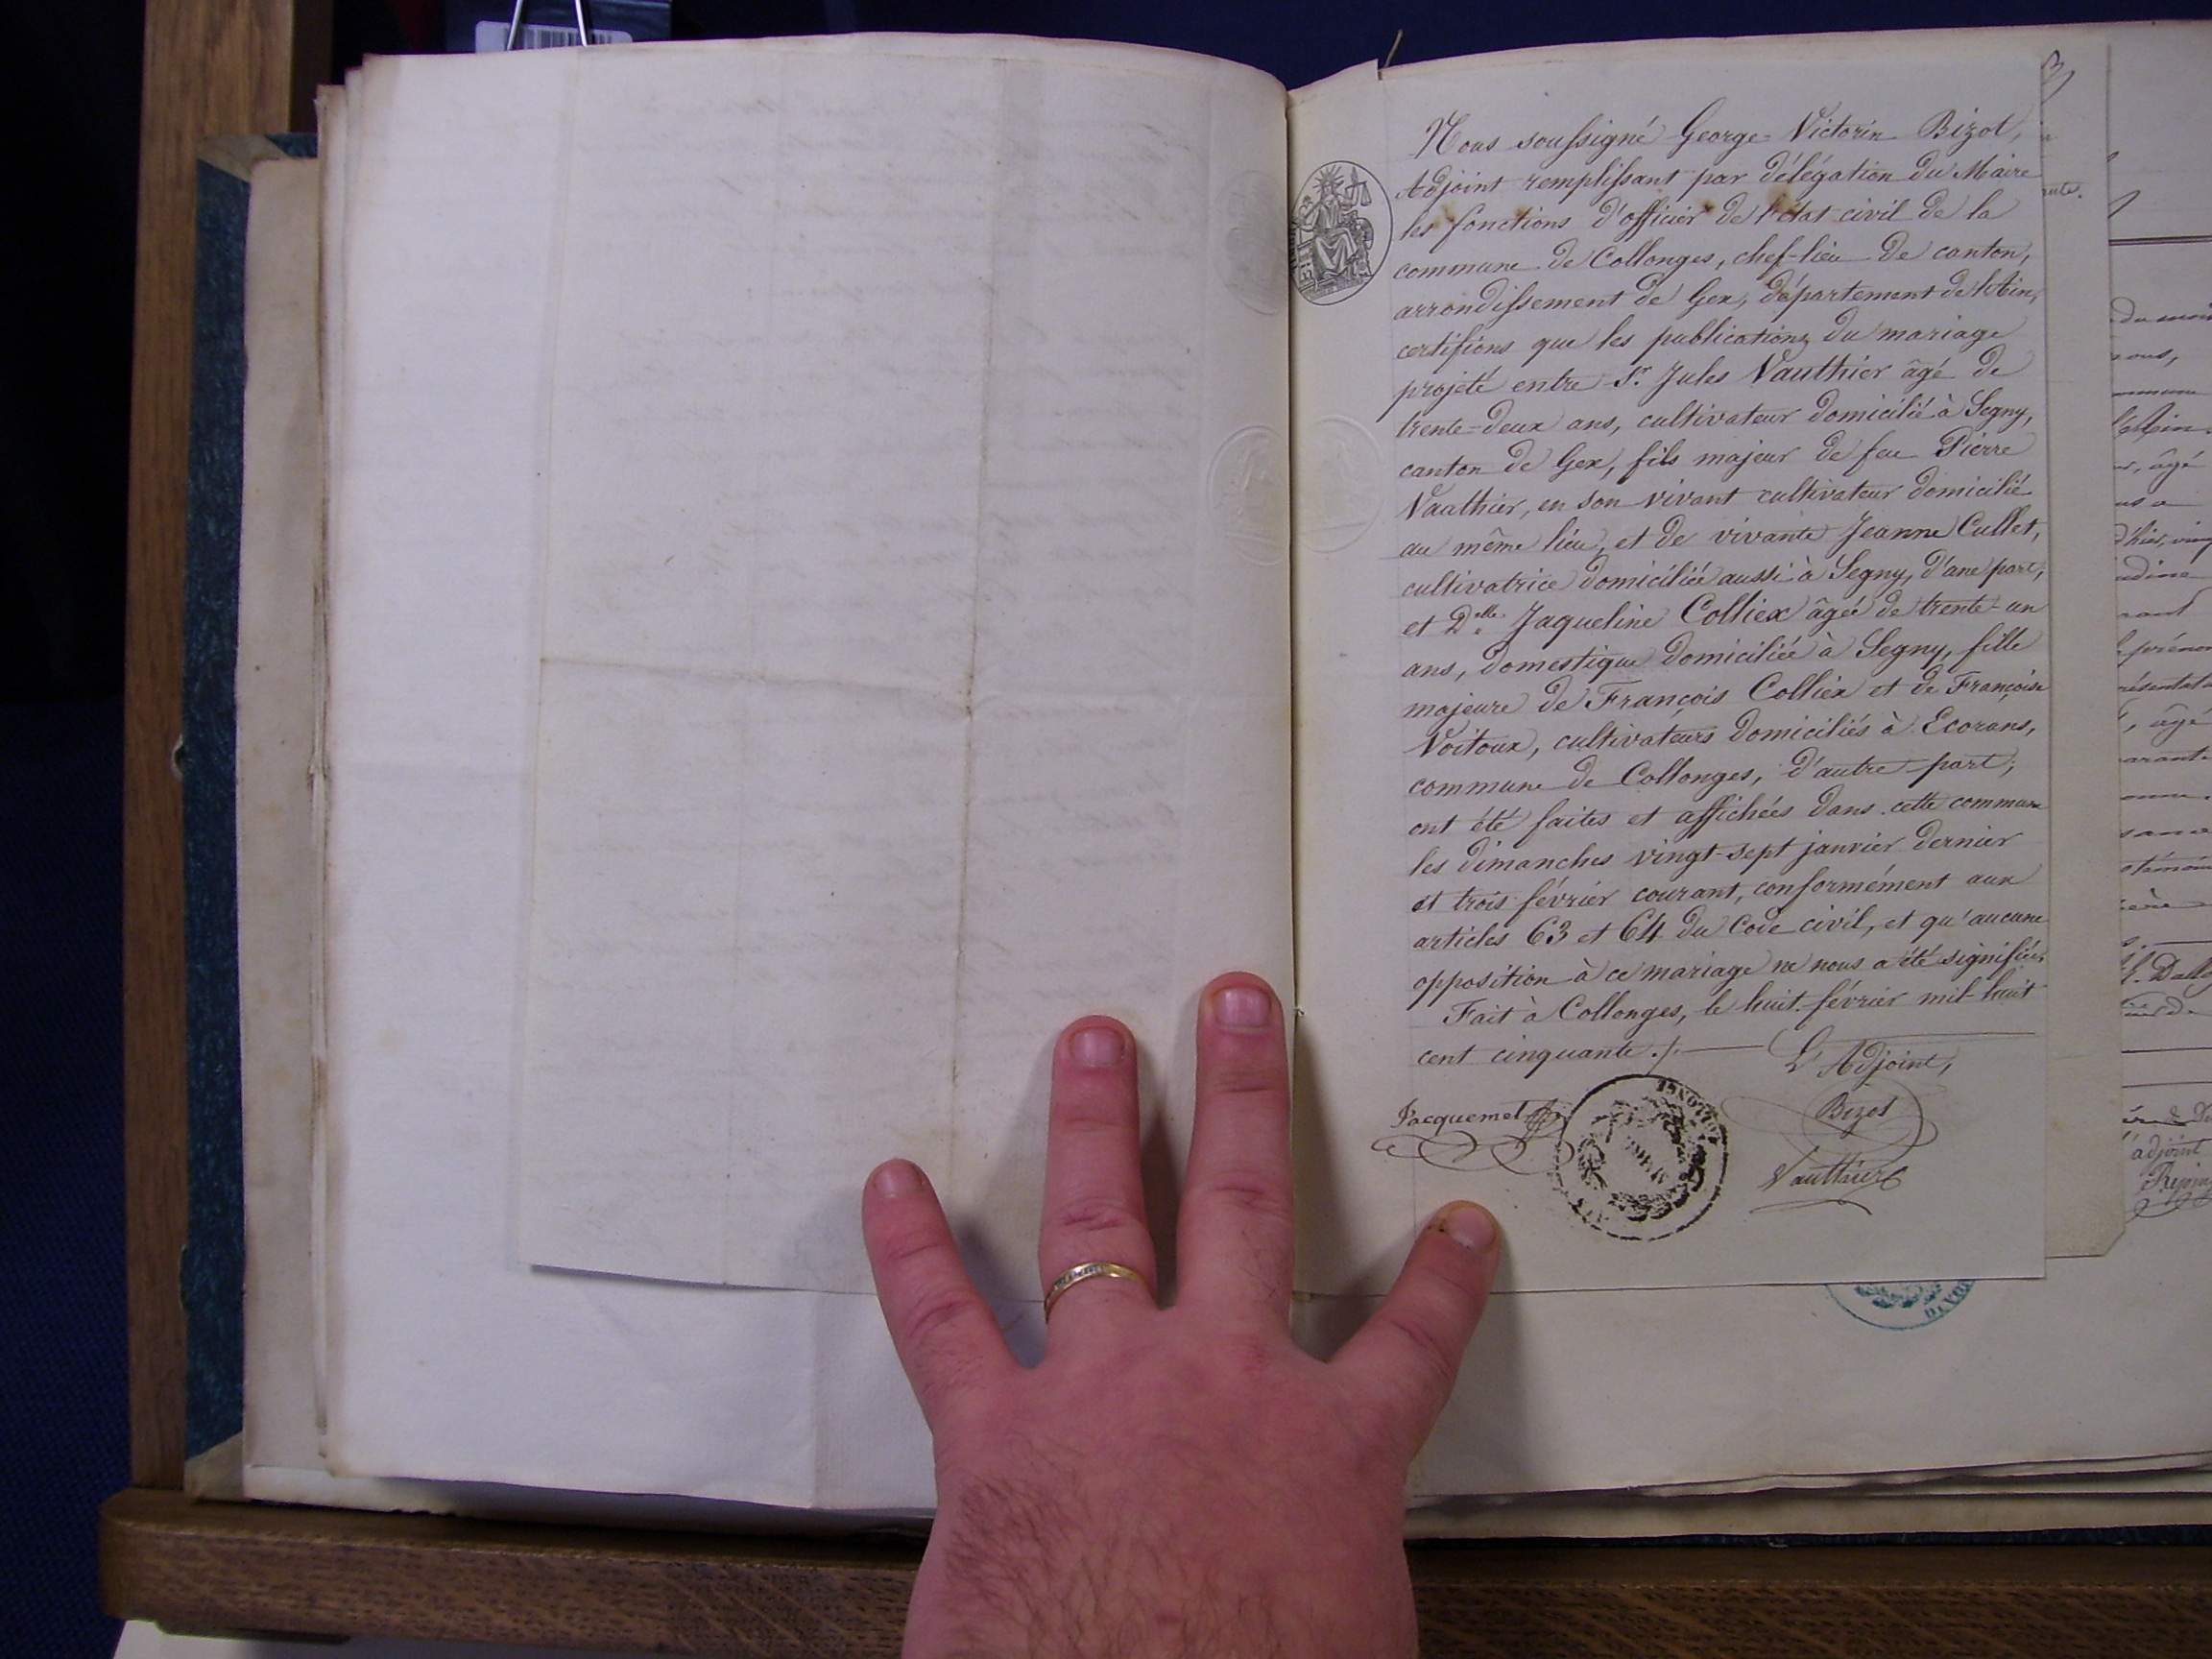 Nous soussigné George-Victorin Bizot,
Adjoint remplissant par délégation du Maire
les fonctions d'officier de l'état civil de la
commune de Collonges, chef-lieu de canton,
arrondissement de Gex, département de l'Ain,
certifions que les publications du mariage
projeté entre Sr. Jules Vauthier âgé de
trente-deux ans, cultivateur domicilié à Segny,
canton de Gex, fils majeur de feu Pierre
Vauthier, en son vivant cultivateur domicilié
au même lieu, et de vivante Jeanne Cullet,
cultivatrice domiciliée aussi à Segny, d'une part;
et Delle. Jaqueline Colliex âgée de trente-un
ans, domestique domiciliée à Segny, fille
majeure de François Colliex et de Françoise
Voitoux, cultivateurs domiciliés à Ecorans,
commune de Collonges, d'autre part;
ont été faites et affichées dans cette commune
les dimanches vingt-sept janvier dernier
et trois février courant, conformément aux
articles 63 et 64 du Code civil, et qu'aucune
opposition à ce mariage ne nous a été signifiée.
Fait à Collonges, le huit février mil-huit
cent cinquante ./.
L'Adjoint,
Jacquemet
Bizot
Vauthier
du mois
nous,
l'Ain.
âgé
d'hier,
âgé
adjoint